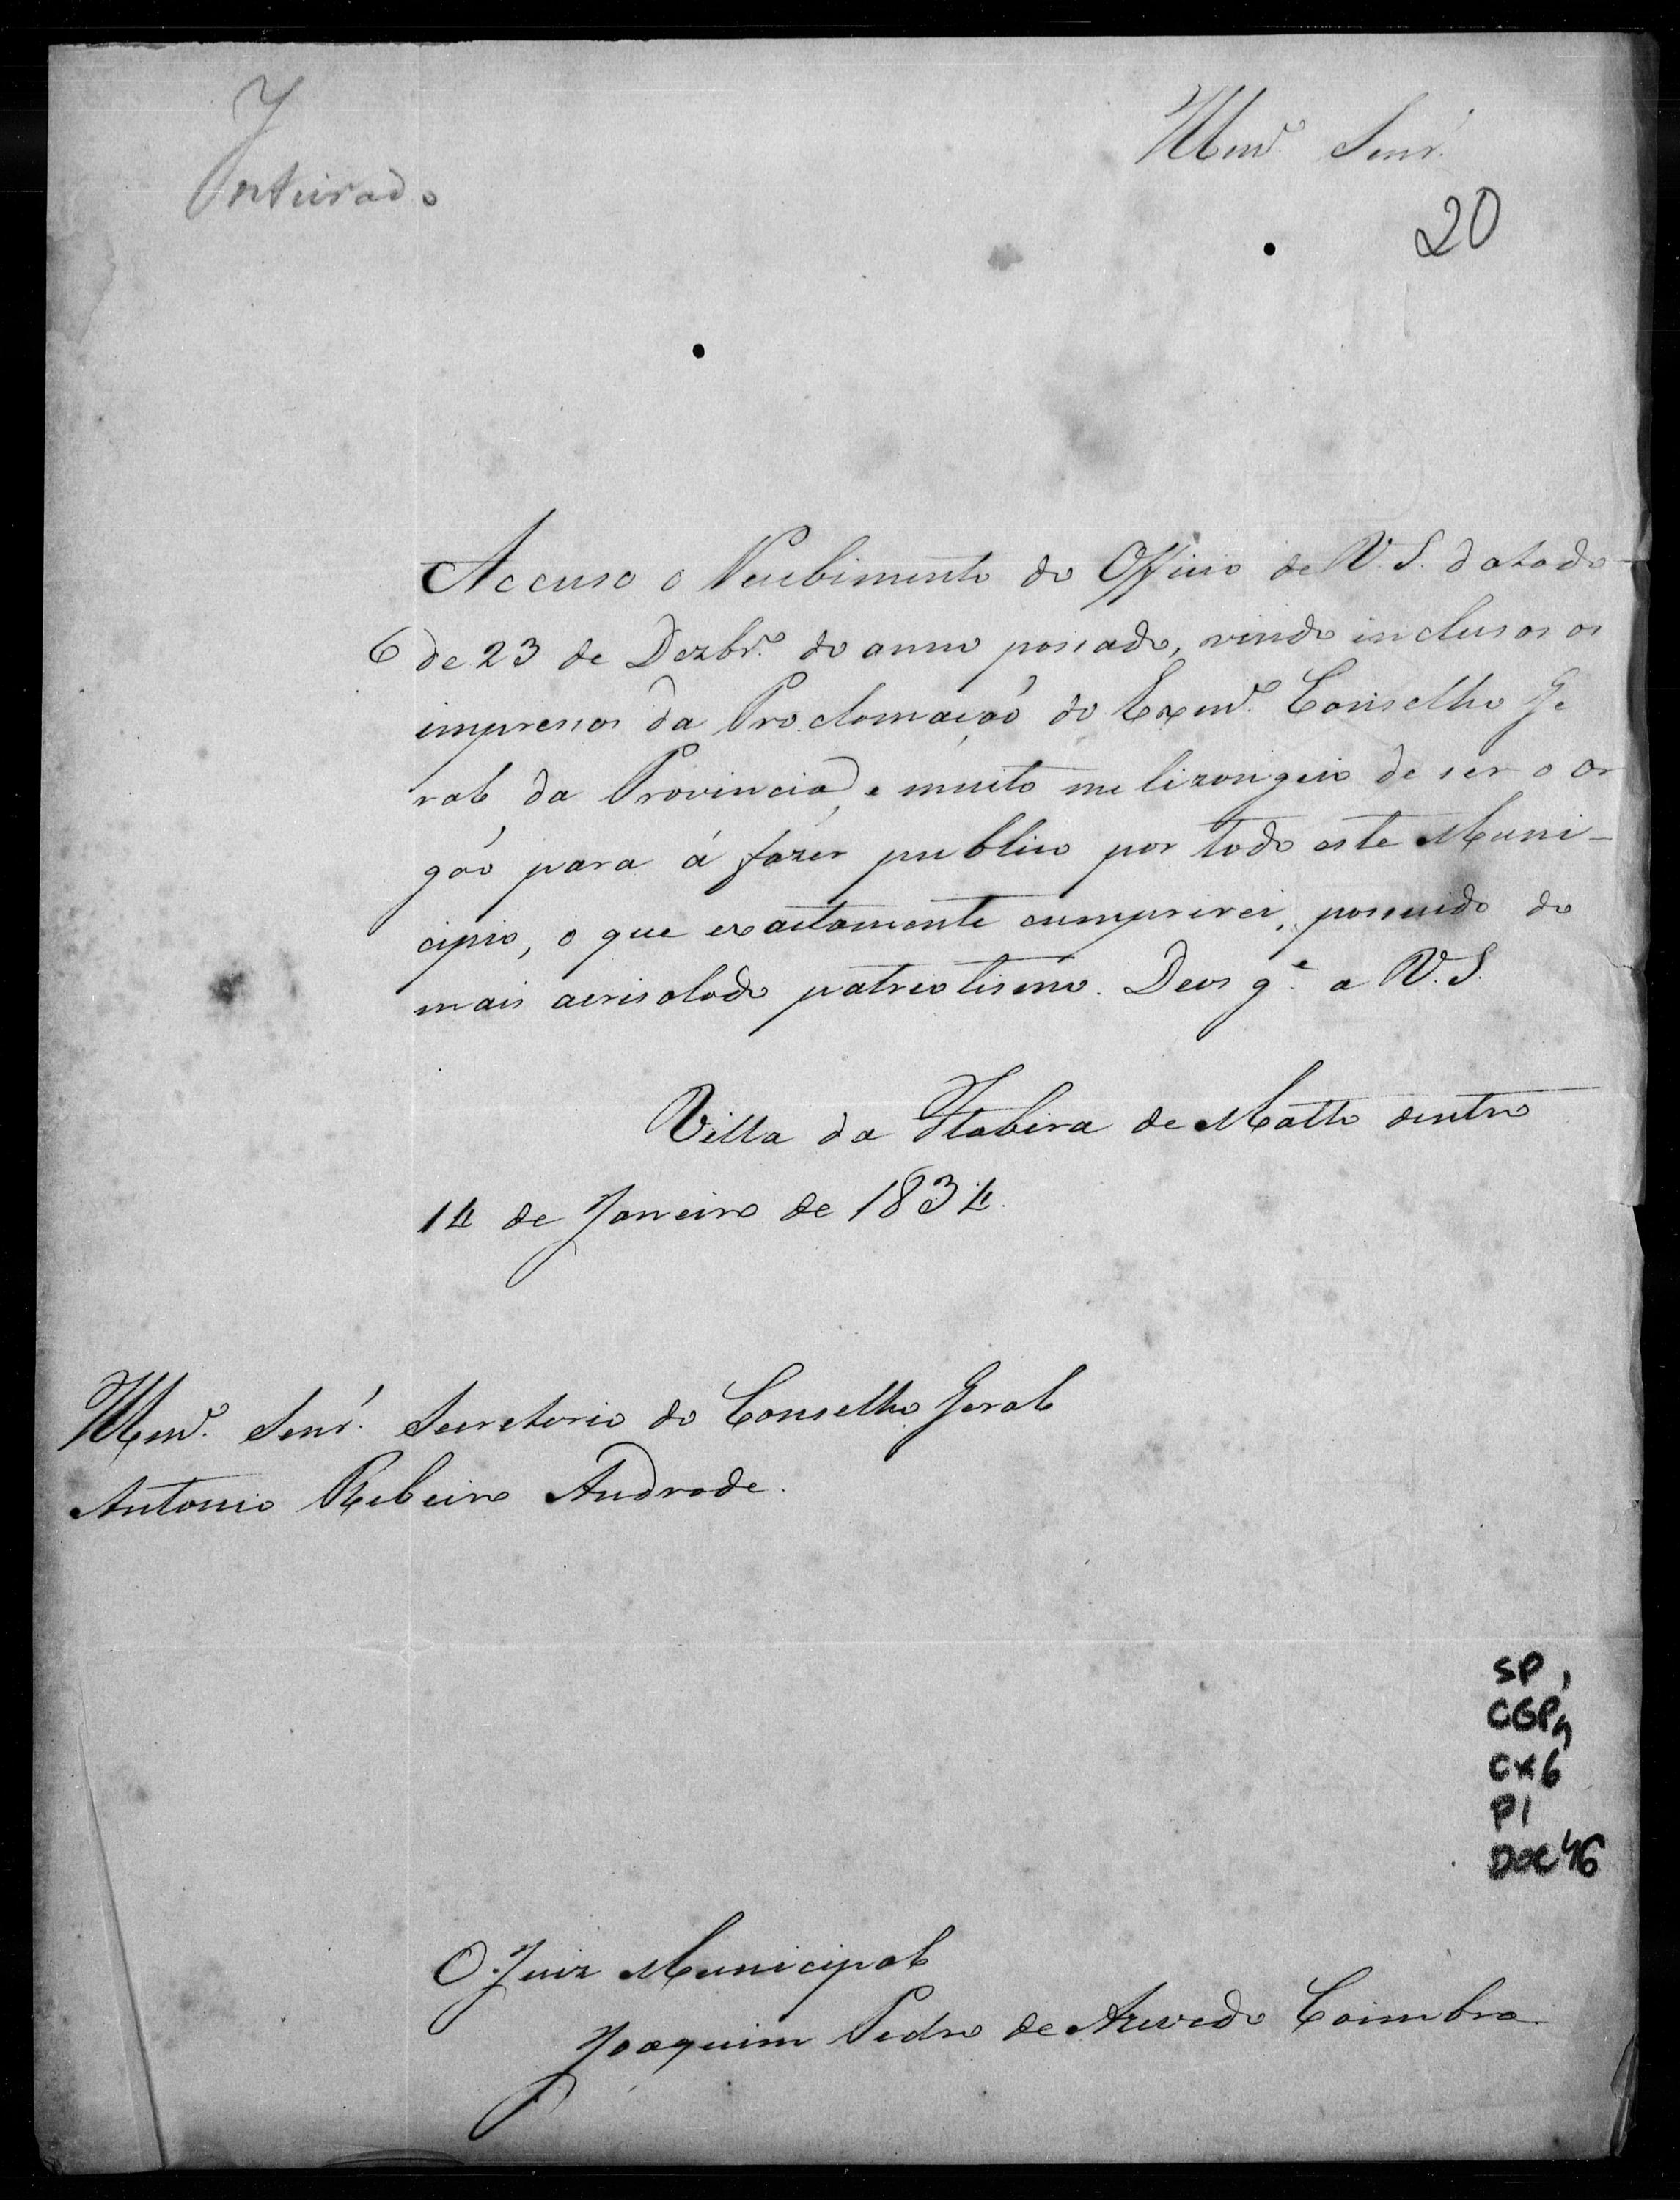 Inteirado
Illmº. Senr.
20
Accuso o Recebimento do Officio de V.S. datado
6 de 23 de Dezbrº. do anno passado, vindo inclusos os
impressos da Proclamação do Exmº. Conselho Ge
ral da Provincia, e muito me lizongeio de ser o Or
gão para á fazer publico por todo este Muni-
cipio, o que exactamente cumprirei, possuido do
mais acrisolado patriotismo. Deos gᵉ. a V.S.
Villa da Itabira de Matto dentro
14 de Janeiro de 1834.
Illmº. Senr. Secretario do Conselho Geral
Antonio Ribeiro Andrade.
SP,
CGP,
CX6
P1
DOC 46
O Juiz Municipal
Joaquim Pedro de Azevedo Coimbra.